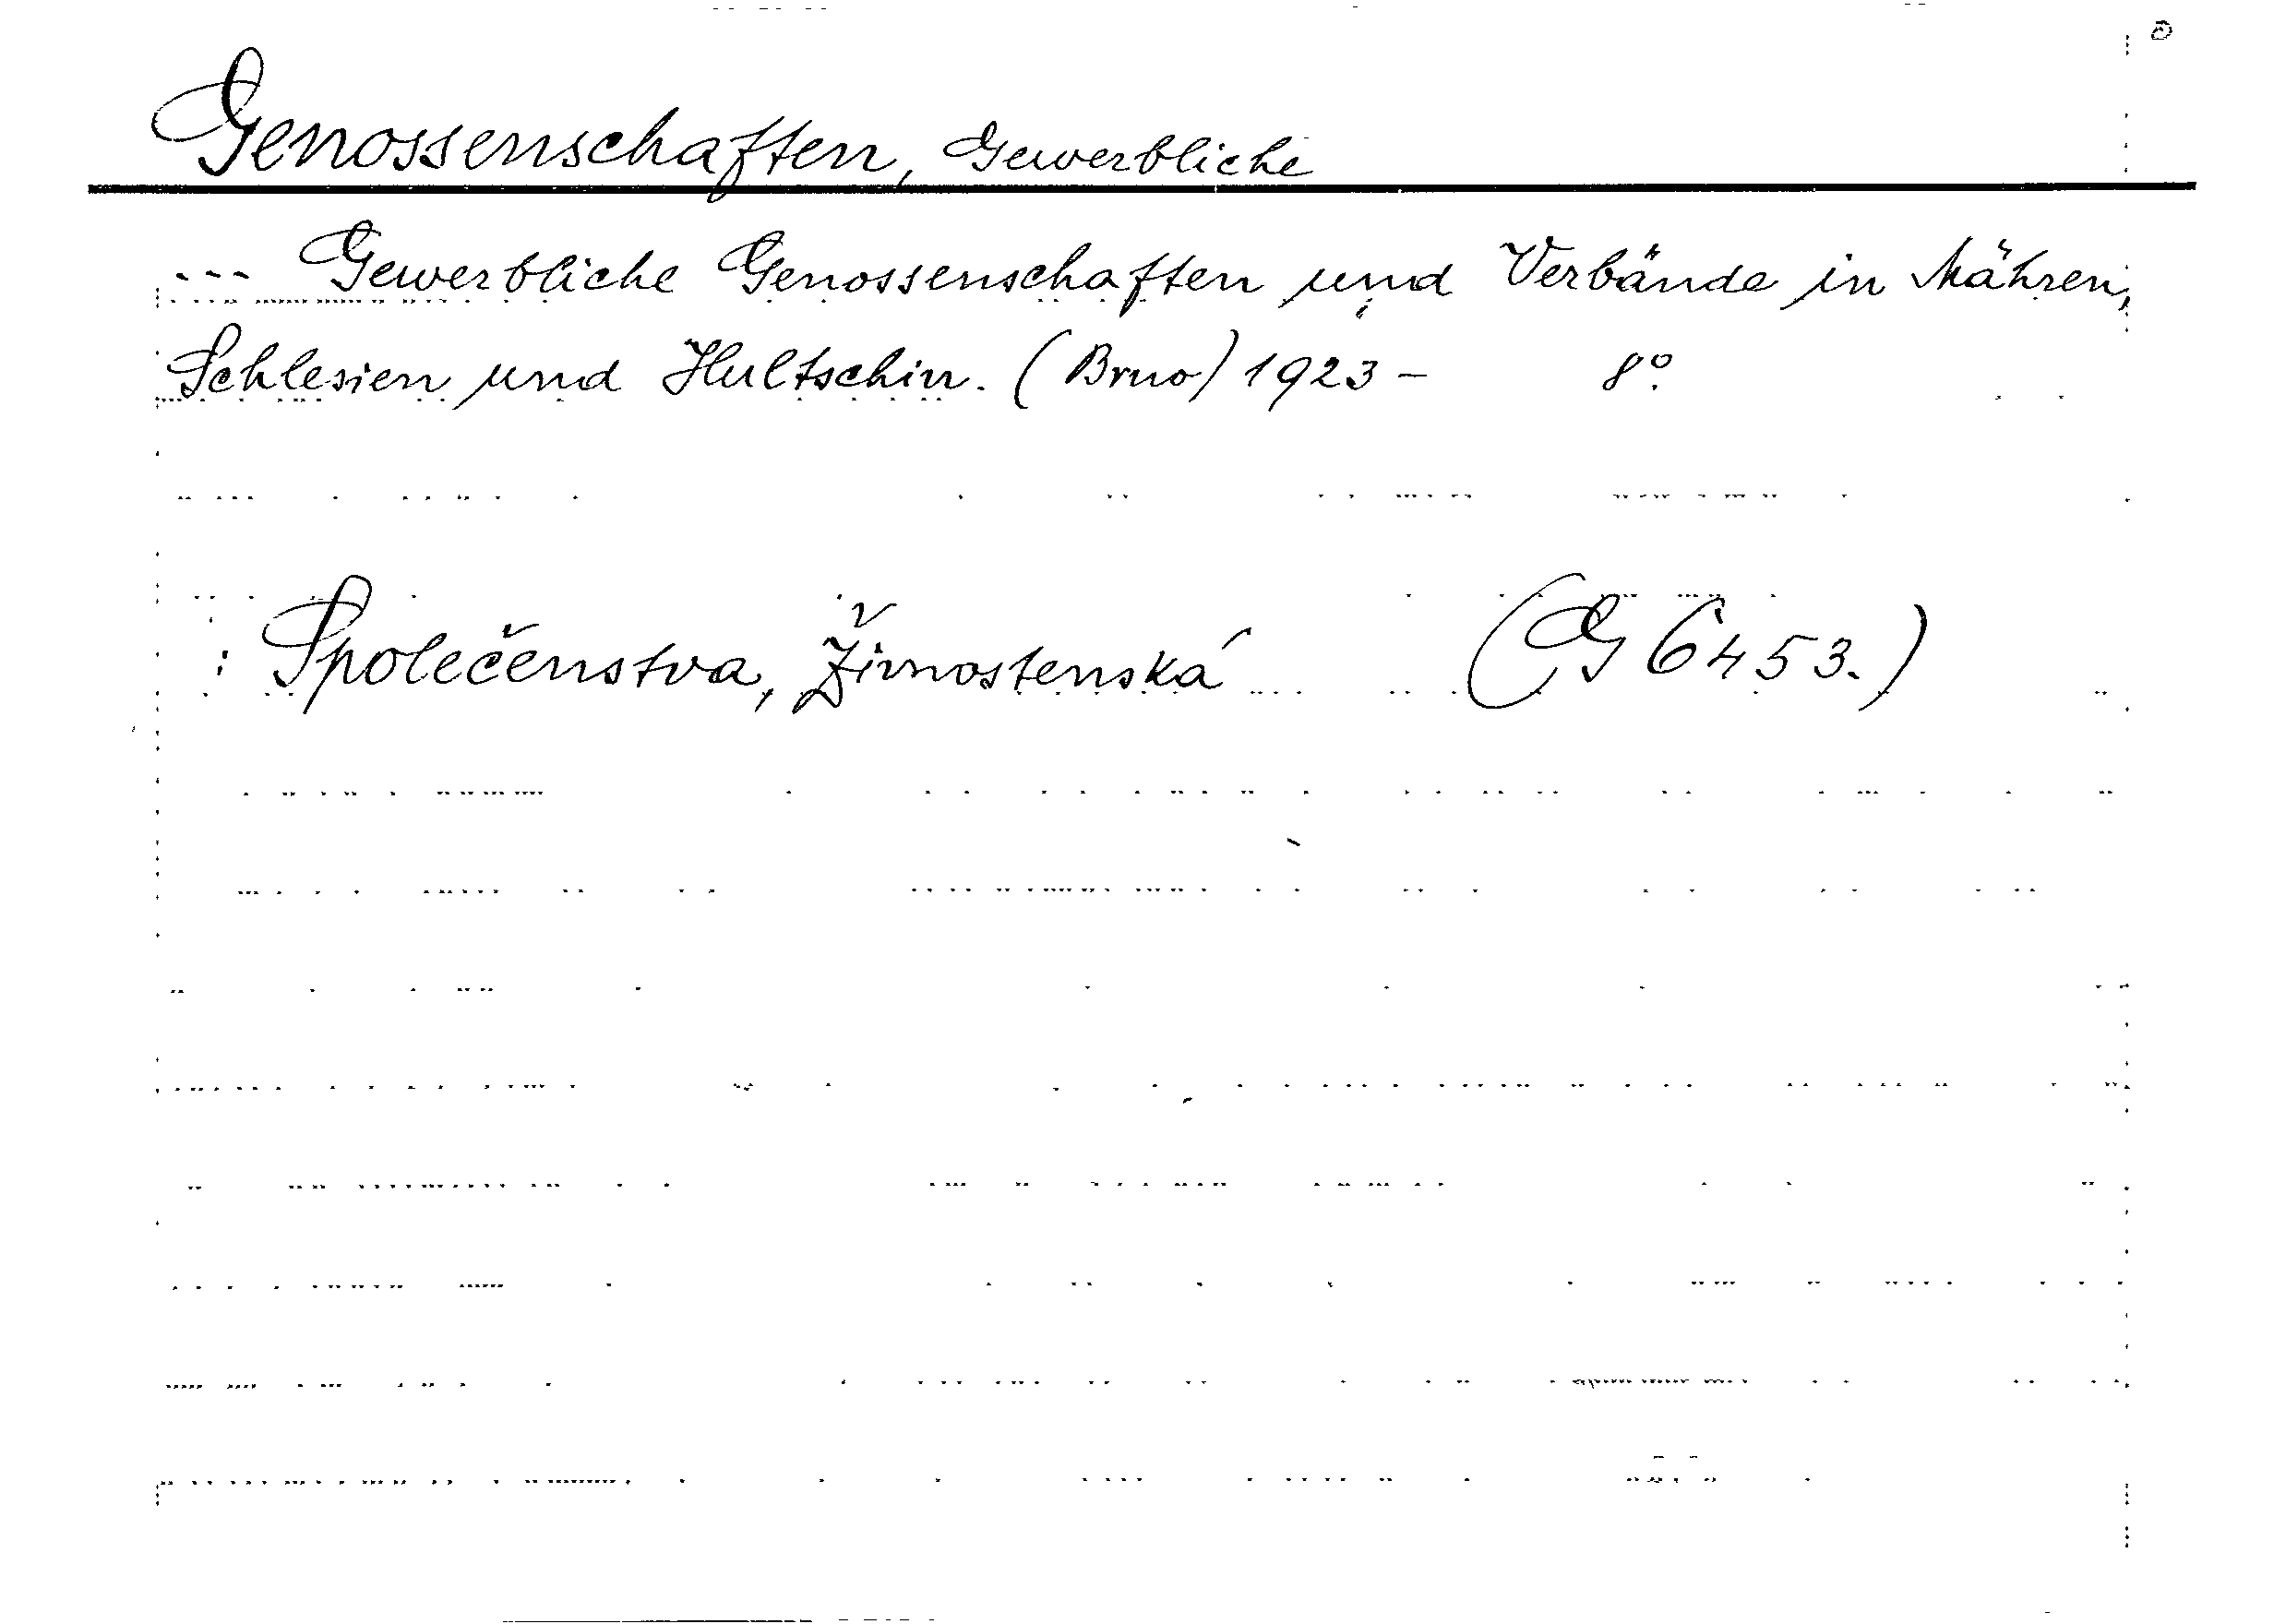 Genossenschaften, Gewerbliche
--- Gewerbliche Genossenschaften und Verbände in Mähren,
Schlesien und Hultschin. (Brno) 1923 – 8°.
: Společenstva, Živnostenská (G 6453.)